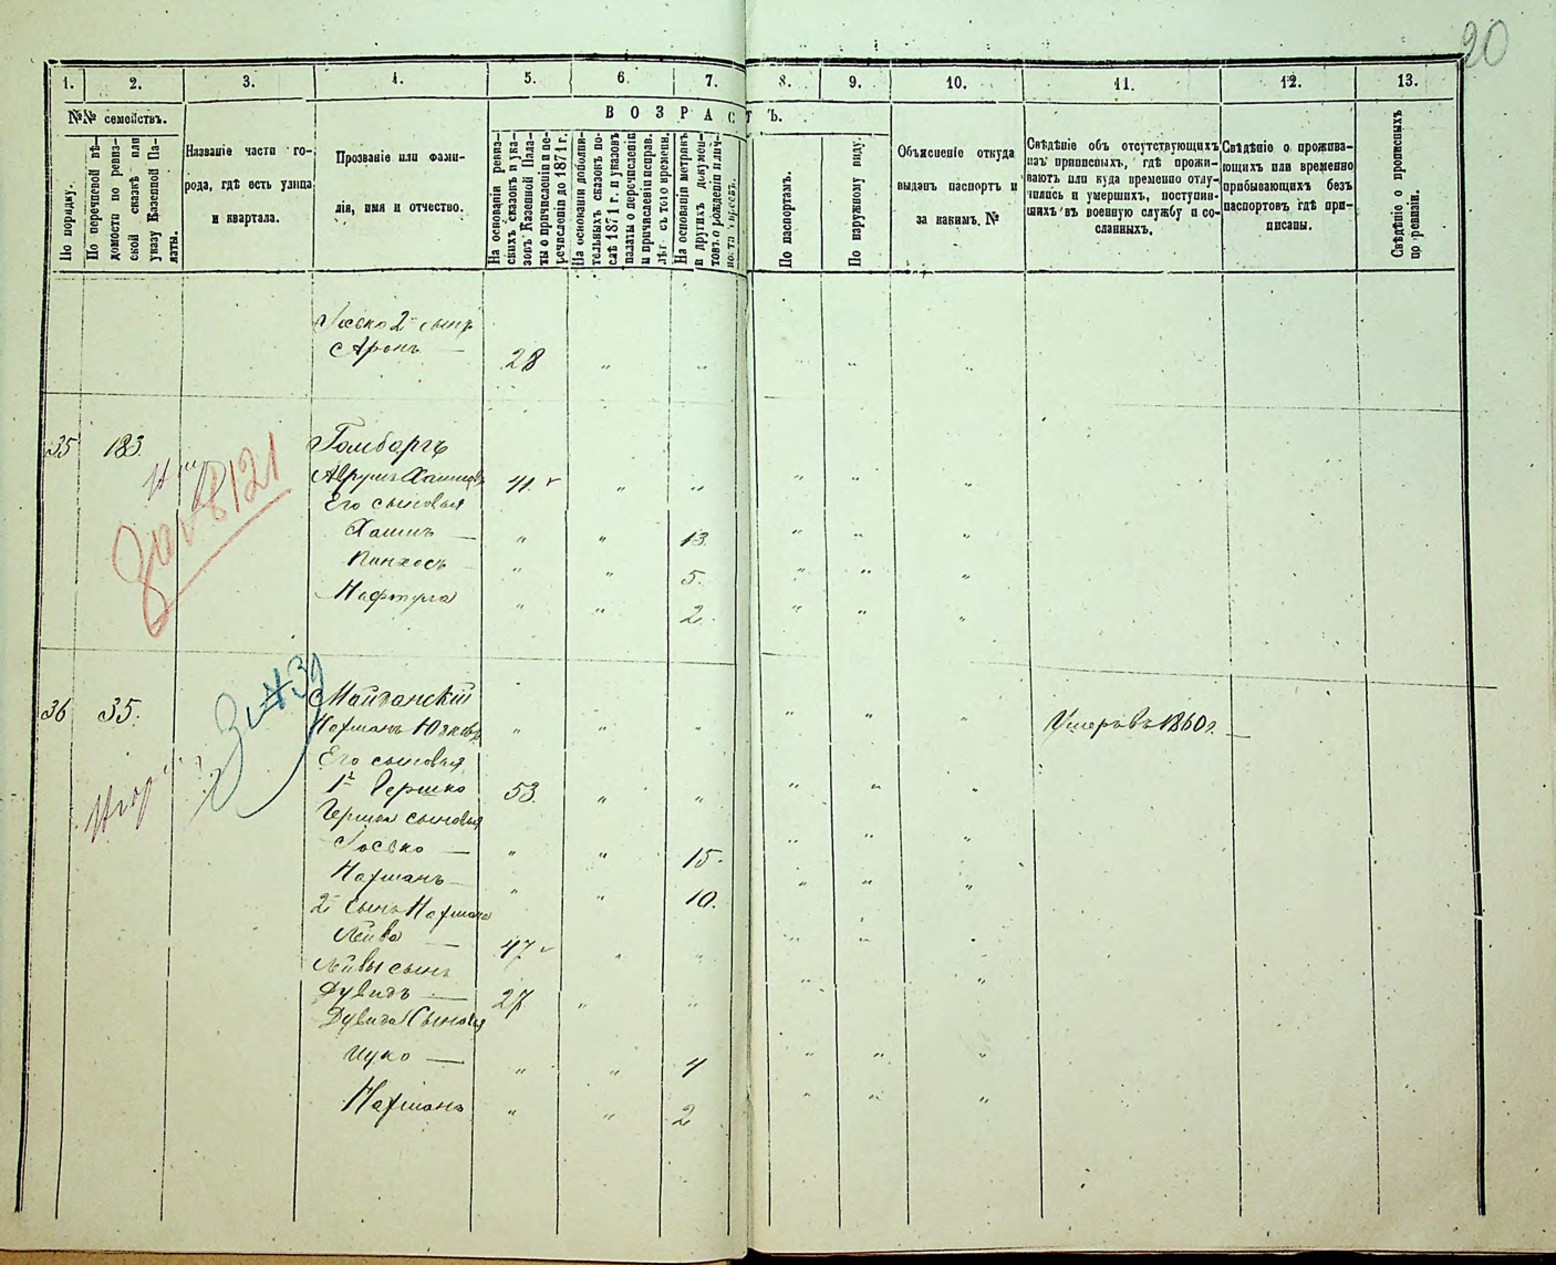 20
1. 2. 3. 4. 5. 6. 7. 8. 9. 10. 11. 12. 13.
№№ семействъ.
По порядку.
По перечневой вѣ-
домости по ревиз-
ской сказкѣ или
указу Казенной Па-
латы.
Названіе части го-
рода, гдѣ есть улица
и квартала.
Прозваніе или фами-
лія, имя и отчество.
ВОЗРАСТЪ.
На основаніи ревиз-
скихъ сказокъ и ука-
зовъ Казенной Пала-
ты о причисленіи и пе-
речисленіи до 1871 г.
На основаніи дополни-
тельныхъ сказокъ по-
слѣ 1871 г. и указовъ
палаты о перечисленіи
и причисленіи исправ.
лѣт съ того времени.
На основаніи метрикъ
и другихъ докумен-
товъ о рожденіи
По паспортамъ.
По наружному виду.
Объясненіе откуда
выданъ паспортъ и
за какимъ. №
Свѣдѣніе объ отсутствующихъ
изъ приписныхъ, гдѣ прожи-
ваютъ или куда временно отлу-
чились и умершихъ, поступив-
шихъ въ военную службу и со-
сланныхъ.
Свѣдѣніе о прожива-
ющихъ или временно
прибывающихъ безъ
паспортовъ гдѣ при-
писаны.
Свѣдѣніе о прописныхъ
по ревизіи.
Іосько 2й сынъ
Аронъ — 28 " " " "
35 183. Гомбаргъ
8121
Аврумъ Хаимовъ 41. " " " " "
Его сыновья
Хаимъ — " " 13. " " "
Пинхосъ " " 5. " " "
Нафтула " " 2. " " "
36 35. Майданскій
Нахманъ Юзковъ " " " " " " Умеръ въ 1860 г. —
Его сыновья
1й Гершко 53. " " " " "
Гершка сыновья
Іосько — " " 15. " "
Нахманъ " " 10. " " "
2й сынъ Нахмана
Лейба — 47 " " " "
Лейбы сынъ
Дувидъ — 27 " " " "
Дувида сыновья
Ицко — " " 4 " " "
Нахманъ " " 2 " " "